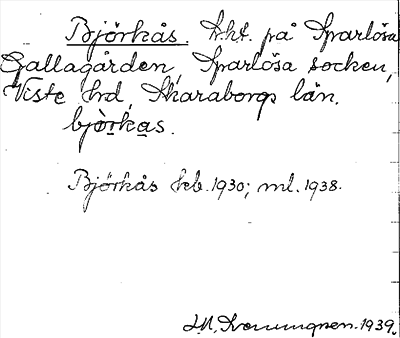 Björkås. Lht. på Sparlösa
Gallagården, Sparlösa socken,
Viste hd, Skaraborgs län.
bjòrkas.
Björkås kb. 1930; ml. 1938.
1939.